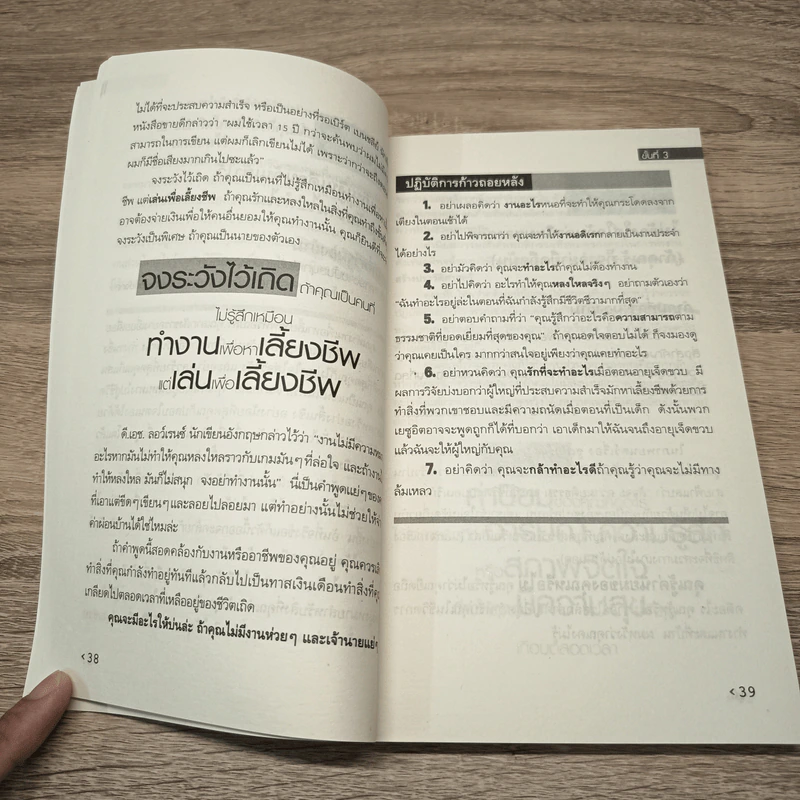 ไม่ได้ที่จะประสบความสำเร็จ หรือเป็นอย่างที่รอเบิร์ต เบนชลีย์
หนังสือขายดีกล่าวว่า “ผมใช้เวลา 15 ปี กว่าจะค้นพบว่าผมไม่มี
สามารถในการเขียน แต่ผมก็เลิกเขียนไม่ได้ เพราะว่ากว่าจะถึง
ผมก็มีชื่อเสียงมากเกินไปซะแล้ว”
จงระวังไว้เถิด ถ้าคุณเป็นคนที่ไม่รู้สึกเหมือนทำงานเพื่อหา
ชีพ แต่เล่นเพื่อเลี้ยงชีพ ถ้าคุณรักและหลงใหลในสิ่งที่คุณทำถึงขั้น
อาจต้องจ่ายเงินเพื่อให้คนอื่นยอมให้คุณทำงานนั้น คุณก็ยินดีที่จะ
จงระวังเป็นพิเศษ ถ้าคุณเป็นนายของตัวเอง
จงระวังไว้เถิด ถ้าคุณเป็นคนที่
ไม่รู้สึกเหมือน
ทำงานเพื่อหาเลี้ยงชีพ
แต่เล่นเพื่อเลี้ยงชีพ
ดี.เอช. ลอว์เรนซ์ นักเขียนอังกฤษกล่าวไว้ว่า “งานไม่มีความ
อะไรหากมันไม่ทำให้คุณหลงใหลราวกับเกมมันๆ ที่ล่อใจ และถ้างาน
ทำให้หลงใหล มันก็ไม่สนุก จงอย่าทำงานนั้น” นี่เป็นคำพูดแย่ๆ ของ
ที่เอาแต่ขีดๆ เขียนๆ และลอยไปลอยมา แต่ทำอย่างนั้นไม่ช่วยให้
ค่าผ่อนบ้านได้ใช่ไหมล่ะ
ถ้าคำพูดนี้สอดคล้องกับงานหรืออาชีพของคุณอยู่ คุณควร
ทำสิ่งที่คุณกำลังทำอยู่ทันทีแล้วกลับไปเป็นทาสเงินเดือนทำสิ่งที่คุณ
เกลียดไปตลอดเวลาที่เหลืออยู่ของชีวิตเถิด
คุณจะมีอะไรให้บ่นล่ะ ถ้าคุณไม่มีงานห่วยๆ และเจ้านายแย่ๆ
<38
ขั้นที่ 3
ปฏิบัติการก้าวถอยหลัง
1. อย่าเผลอคิดว่า งานอะไรหนอที่จะทำให้คุณกระโดดลงจาก
เตียงในตอนเช้าได้
2. อย่าไปพิจารณาว่า คุณจะทำให้งานอดิเรกกลายเป็นงานประจำ
ได้อย่างไร
3. อย่ามัวคิดว่า คุณจะทำอะไรถ้าคุณไม่ต้องทำงาน
4. อย่าไปคิดว่า อะไรทำให้คุณหลงใหลจริงๆ อย่าถามตัวเองว่า
“ฉันทำอะไรอยู่ล่ะในตอนที่ฉันกำลังรู้สึกมีชีวิตชีวามากที่สุด”
5. อย่าตอบคำถามที่ว่า “คุณรู้สึกว่าอะไรคือความสามารถตาม
ธรรมชาติที่ยอดเยี่ยมที่สุดของคุณ” ถ้าคุณอดใจตอบไม่ได้ ก็จงมองดู
ว่าคุณเคยเป็นใคร มากกว่าสนใจอยู่เพียงว่าคุณเคยทำอะไร
6. อย่าหวนคิดว่า คุณรักที่จะทำอะไรเมื่อตอนอายุเจ็ดขวบ มี
ผลการวิจัยบ่งบอกว่าผู้ใหญ่ที่ประสบความสำเร็จมักหาเลี้ยงชีพด้วยการ
ทำสิ่งที่พวกเขาชอบและมีความถนัดเมื่อตอนที่เป็นเด็ก ดังนั้นพวก
เยซูอิตอาจจะพูดถูกก็ได้ที่บอกว่า เอาเด็กมาให้ฉันจนถึงอายุเจ็ดขวบ
แล้วฉันจะให้ผู้ใหญ่กับคุณ
7. อย่าคิดว่า คุณจะกล้าทำอะไรดีถ้าคุณรู้ว่าคุณจะไม่มีทาง
ล้มเหลว
<39